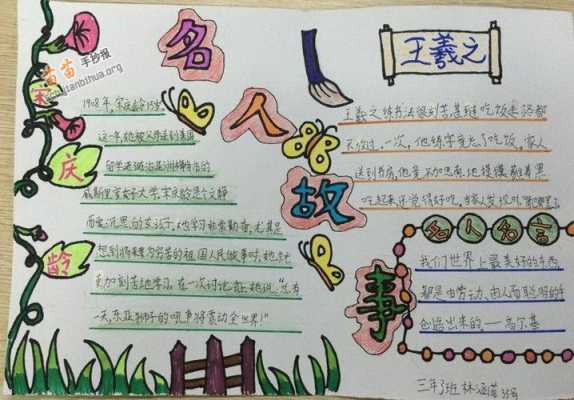 名人故事
苗苗手抄报
jianbihua.org
宋庆龄
1908年,宋庆龄15岁,
这一年,她被父亲送到美国
留学进
威斯里安女子大学,宋庆龄是个文静
而爱沉思的女孩子,她学习非常勤奋,尤其是
想到将来为穷苦的祖国人民做事时,她就
更加刻苦地学习。在一次讨论会上她说:“总有
一天,东亚狮子的吼声将震动全世界!”
王羲之
王羲之练书法很刻苦,甚至连吃饭走路都
不放过,一次,他练字竟忘了吃饭,家人
送到书房,他竟不加思索,他馍馍蘸着墨
吃起来还觉得好吃。当家人发现时
名人名言
我们世界上最美好的东西
都是由劳动、由人的聪明的手
创造出来的——高尔基
三年3班 林涵